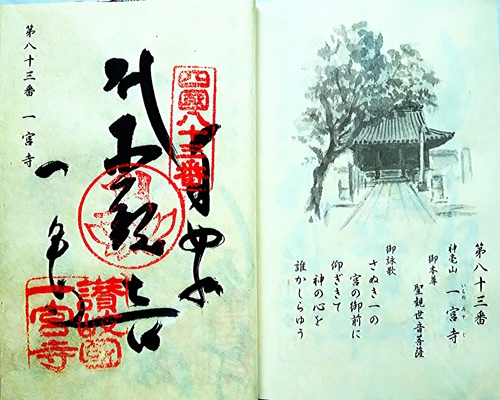 第八十三番
神毫山 一宮寺
いちのみやじ
御本尊
聖観世音菩薩
御詠歌
さぬき一の
宮の御前に
仰ぎきて
神の心を
誰かしらゆう
四國八十三番
讃岐國
一宮寺
第八十三番 一宮寺